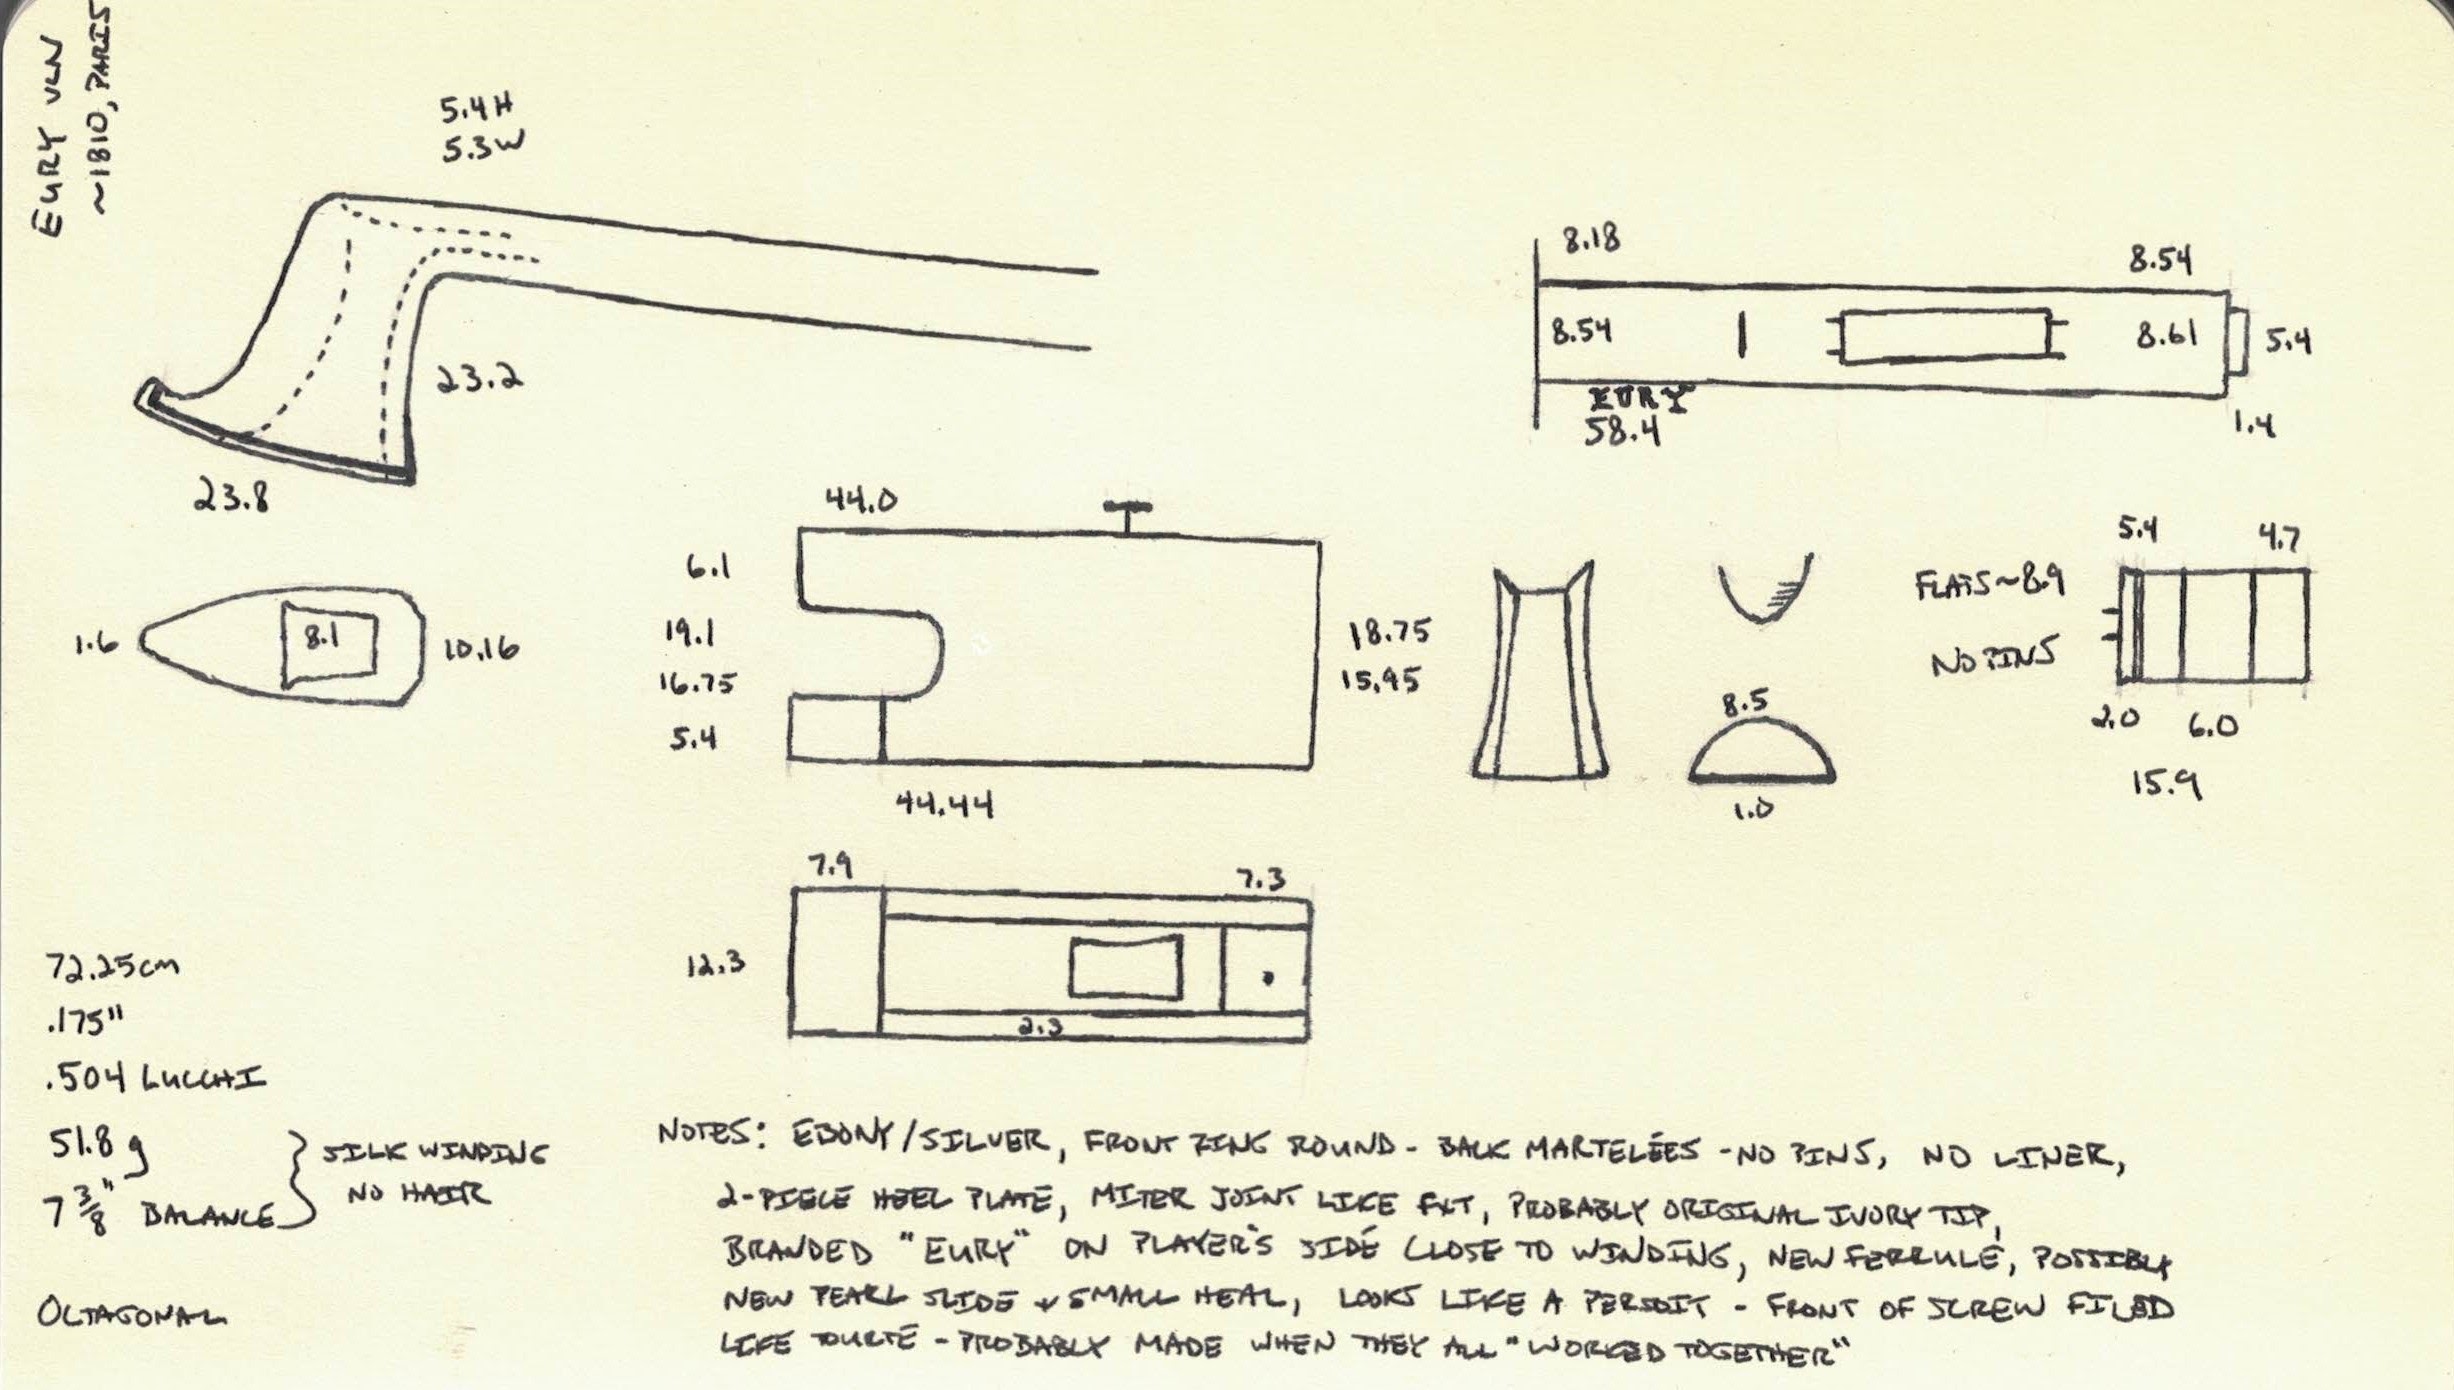 EURY VLN
~1810, PARIS
5.4H
5.3W
23.2
23.8
8.18
8.54
8.54
8.61
5.4
EURY
58.4
1.4
44.0
6.1
19.1
16.75
5.4
18.75
15.95
44.44
1.6
8.1
10.16
8.5
1.0
5.4
4.7
FLATS ~8.9
NO PINS
2.0
6.0
15.9
7.9
7.3
12.3
2.3
72.25cm
.175"
.504 LUCCHI
51.8 g
7 3/8" BALANCE
SILK WINDING
NO HAIR
OCTAGONAL
NOTES: EBONY/SILVER, FRONT RING ROUND - BACK MARTELÉES - NO PINS, NO LINER,
2-PIECE HEEL PLATE, MITER JOINT LIKE FXT, PROBABLY ORIGINAL IVORY TIP,
BRANDED "EURY" ON PLAYER'S SIDE CLOSE TO WINDING, NEW FERRULE, POSSIBLY
NEW PEARL SLIDE + SMALL HEAL, LOOKS LIKE A PERSOIT - FRONT OF SCREW FILED
LIKE TOURTE - PROBABLY MADE WHEN THEY ALL "WORKED TOGETHER"